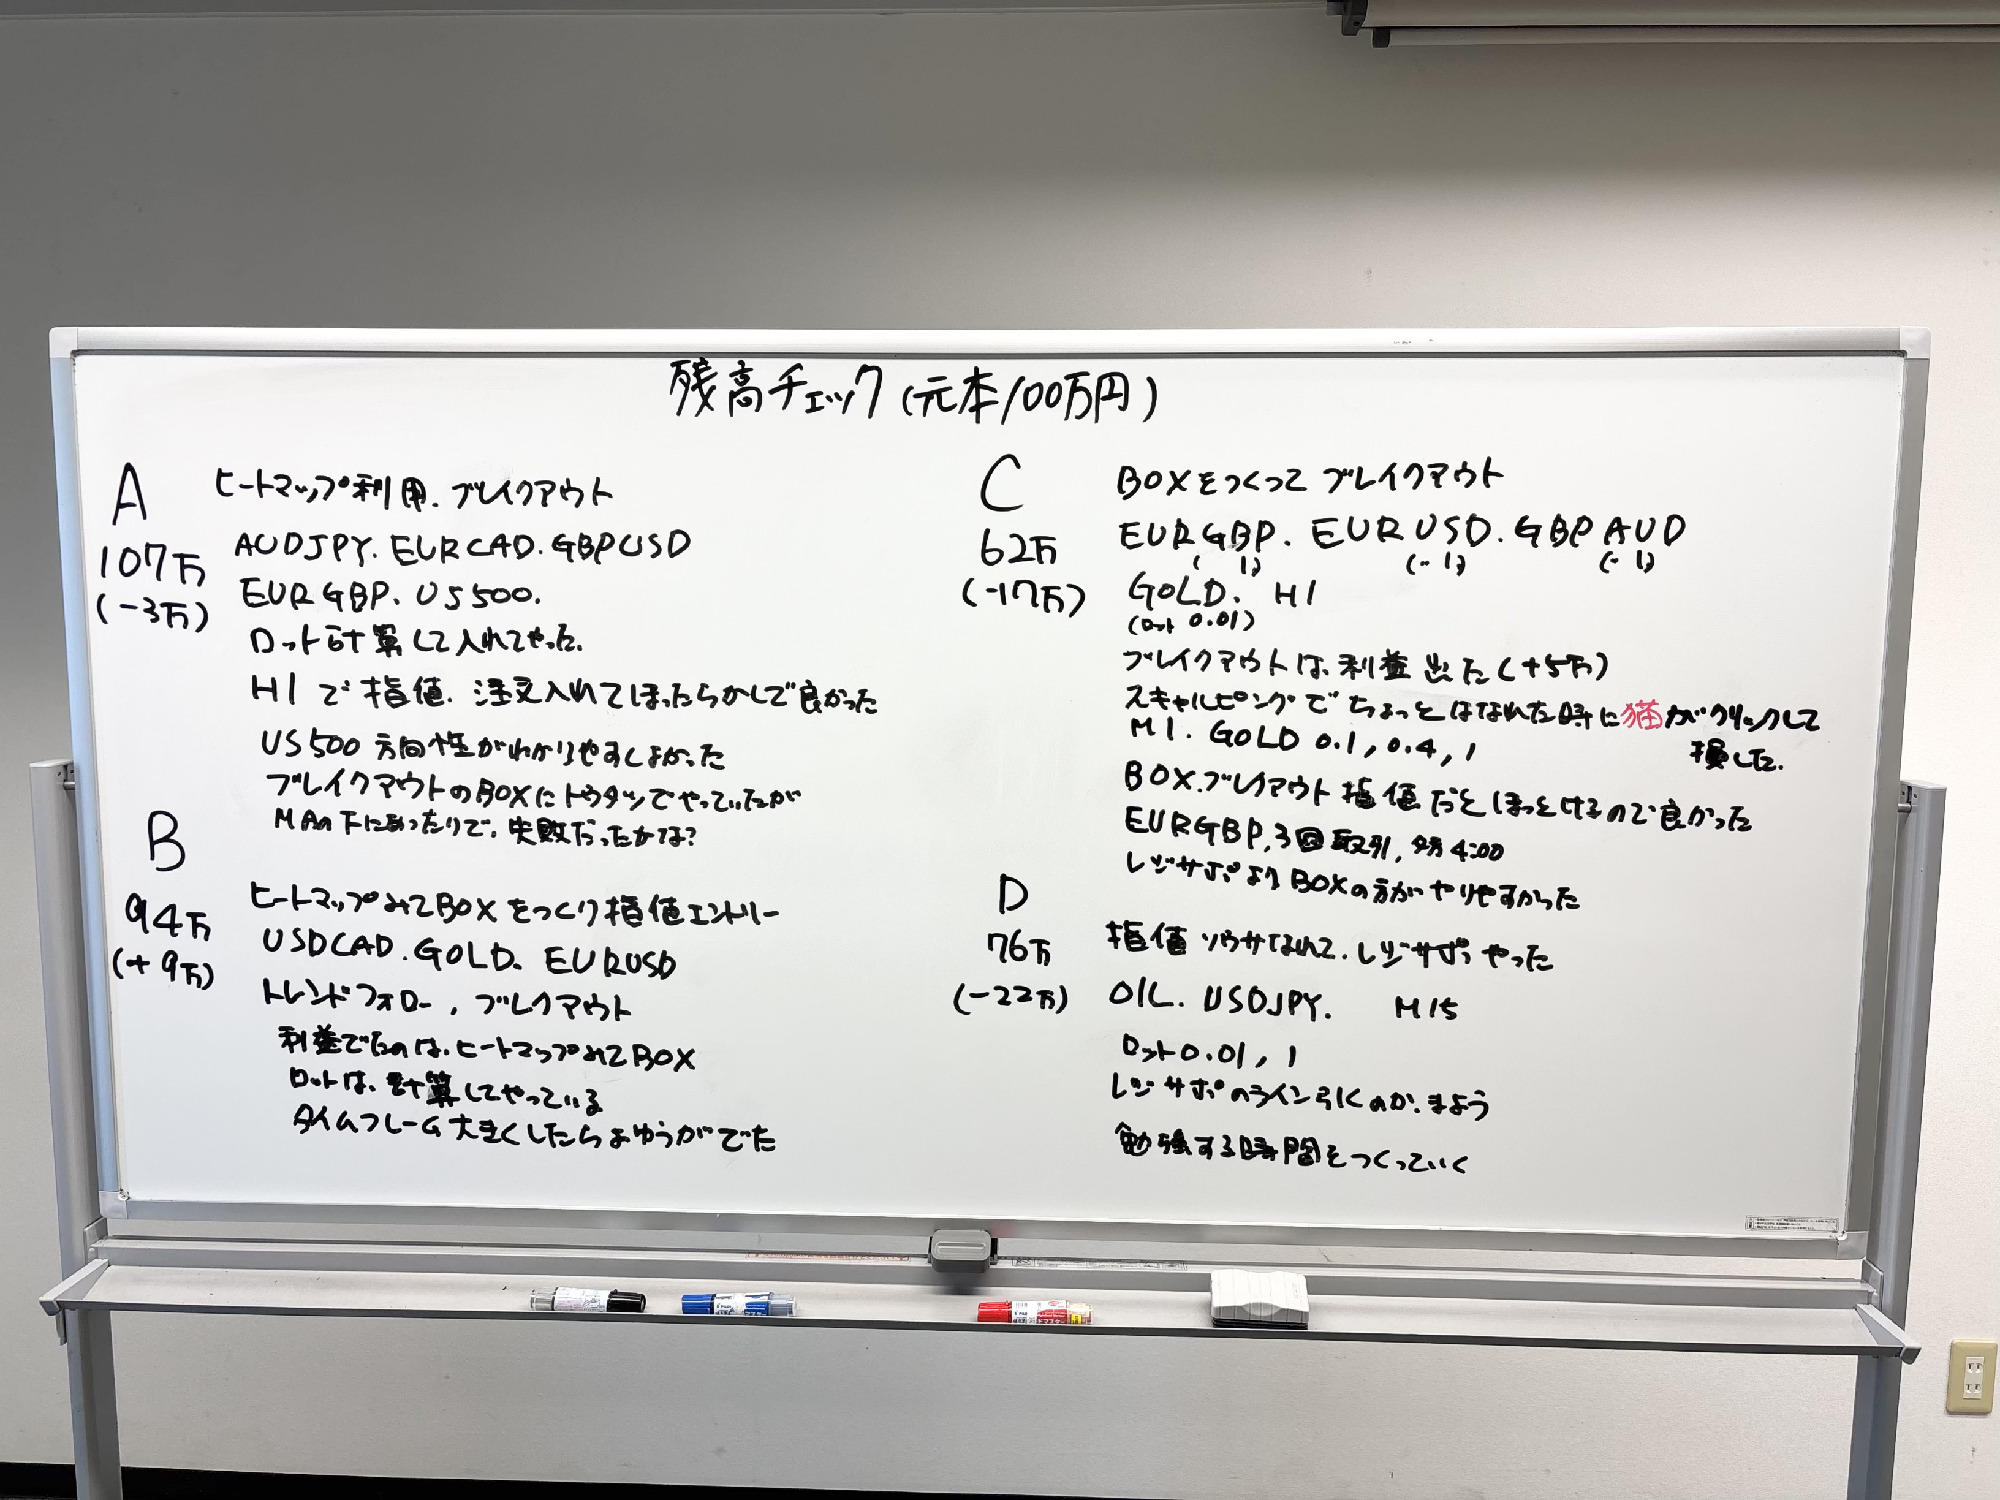 残高チェック(元本100万円)
A
107万
(-3万)
ヒートマップ利用.ブレイクアウト
AUDJPY.EURCAD.GBPUSD
EURGBP、US500.
ロット計算して入れてやった.
H1で指値.注文入れてほったらかしで良かった
US500方向性がわかりやすしよかった
ブレイクアウトのBOXにトウタツでやっていたが
MAの下にあったりで、失敗だったかな?
B
94万
(+9万)
ヒートマップみてBOXをつくり指値エントリー
USDCAD.GOLD、EURUSD
トレンドフォロー,ブレクアウト
利益でたのは、ヒートマップみてBOX
ロットは、計算してやっている
タイムフレーム大きくしたらよゆうがでた
C
62万
(-17万)
BOXをつくってブレイクアウト
EURGBP.EURUSD.GBPAUD
GOLD. H1
(ロット0.01)
ブレイクアウトは、利益出た(+5万)
スキャルピングでちょっとはなれた時に猫がクリックして
損した.
M1.GOLD 0.1,0.4,1
BOX.ブレイクアウト指値だとほっとけるので良かった
EURGBP,3回取引,夕方4:00
レジサポよりBOXの方がやりやすかった
D
76万
(-22万)
指値ソウサなれて.レジサポやった
OIL.USDJPY. M15
ロット0.01,1
レジサポのライン引くのが、まよう
勉強する時間をつくっていく